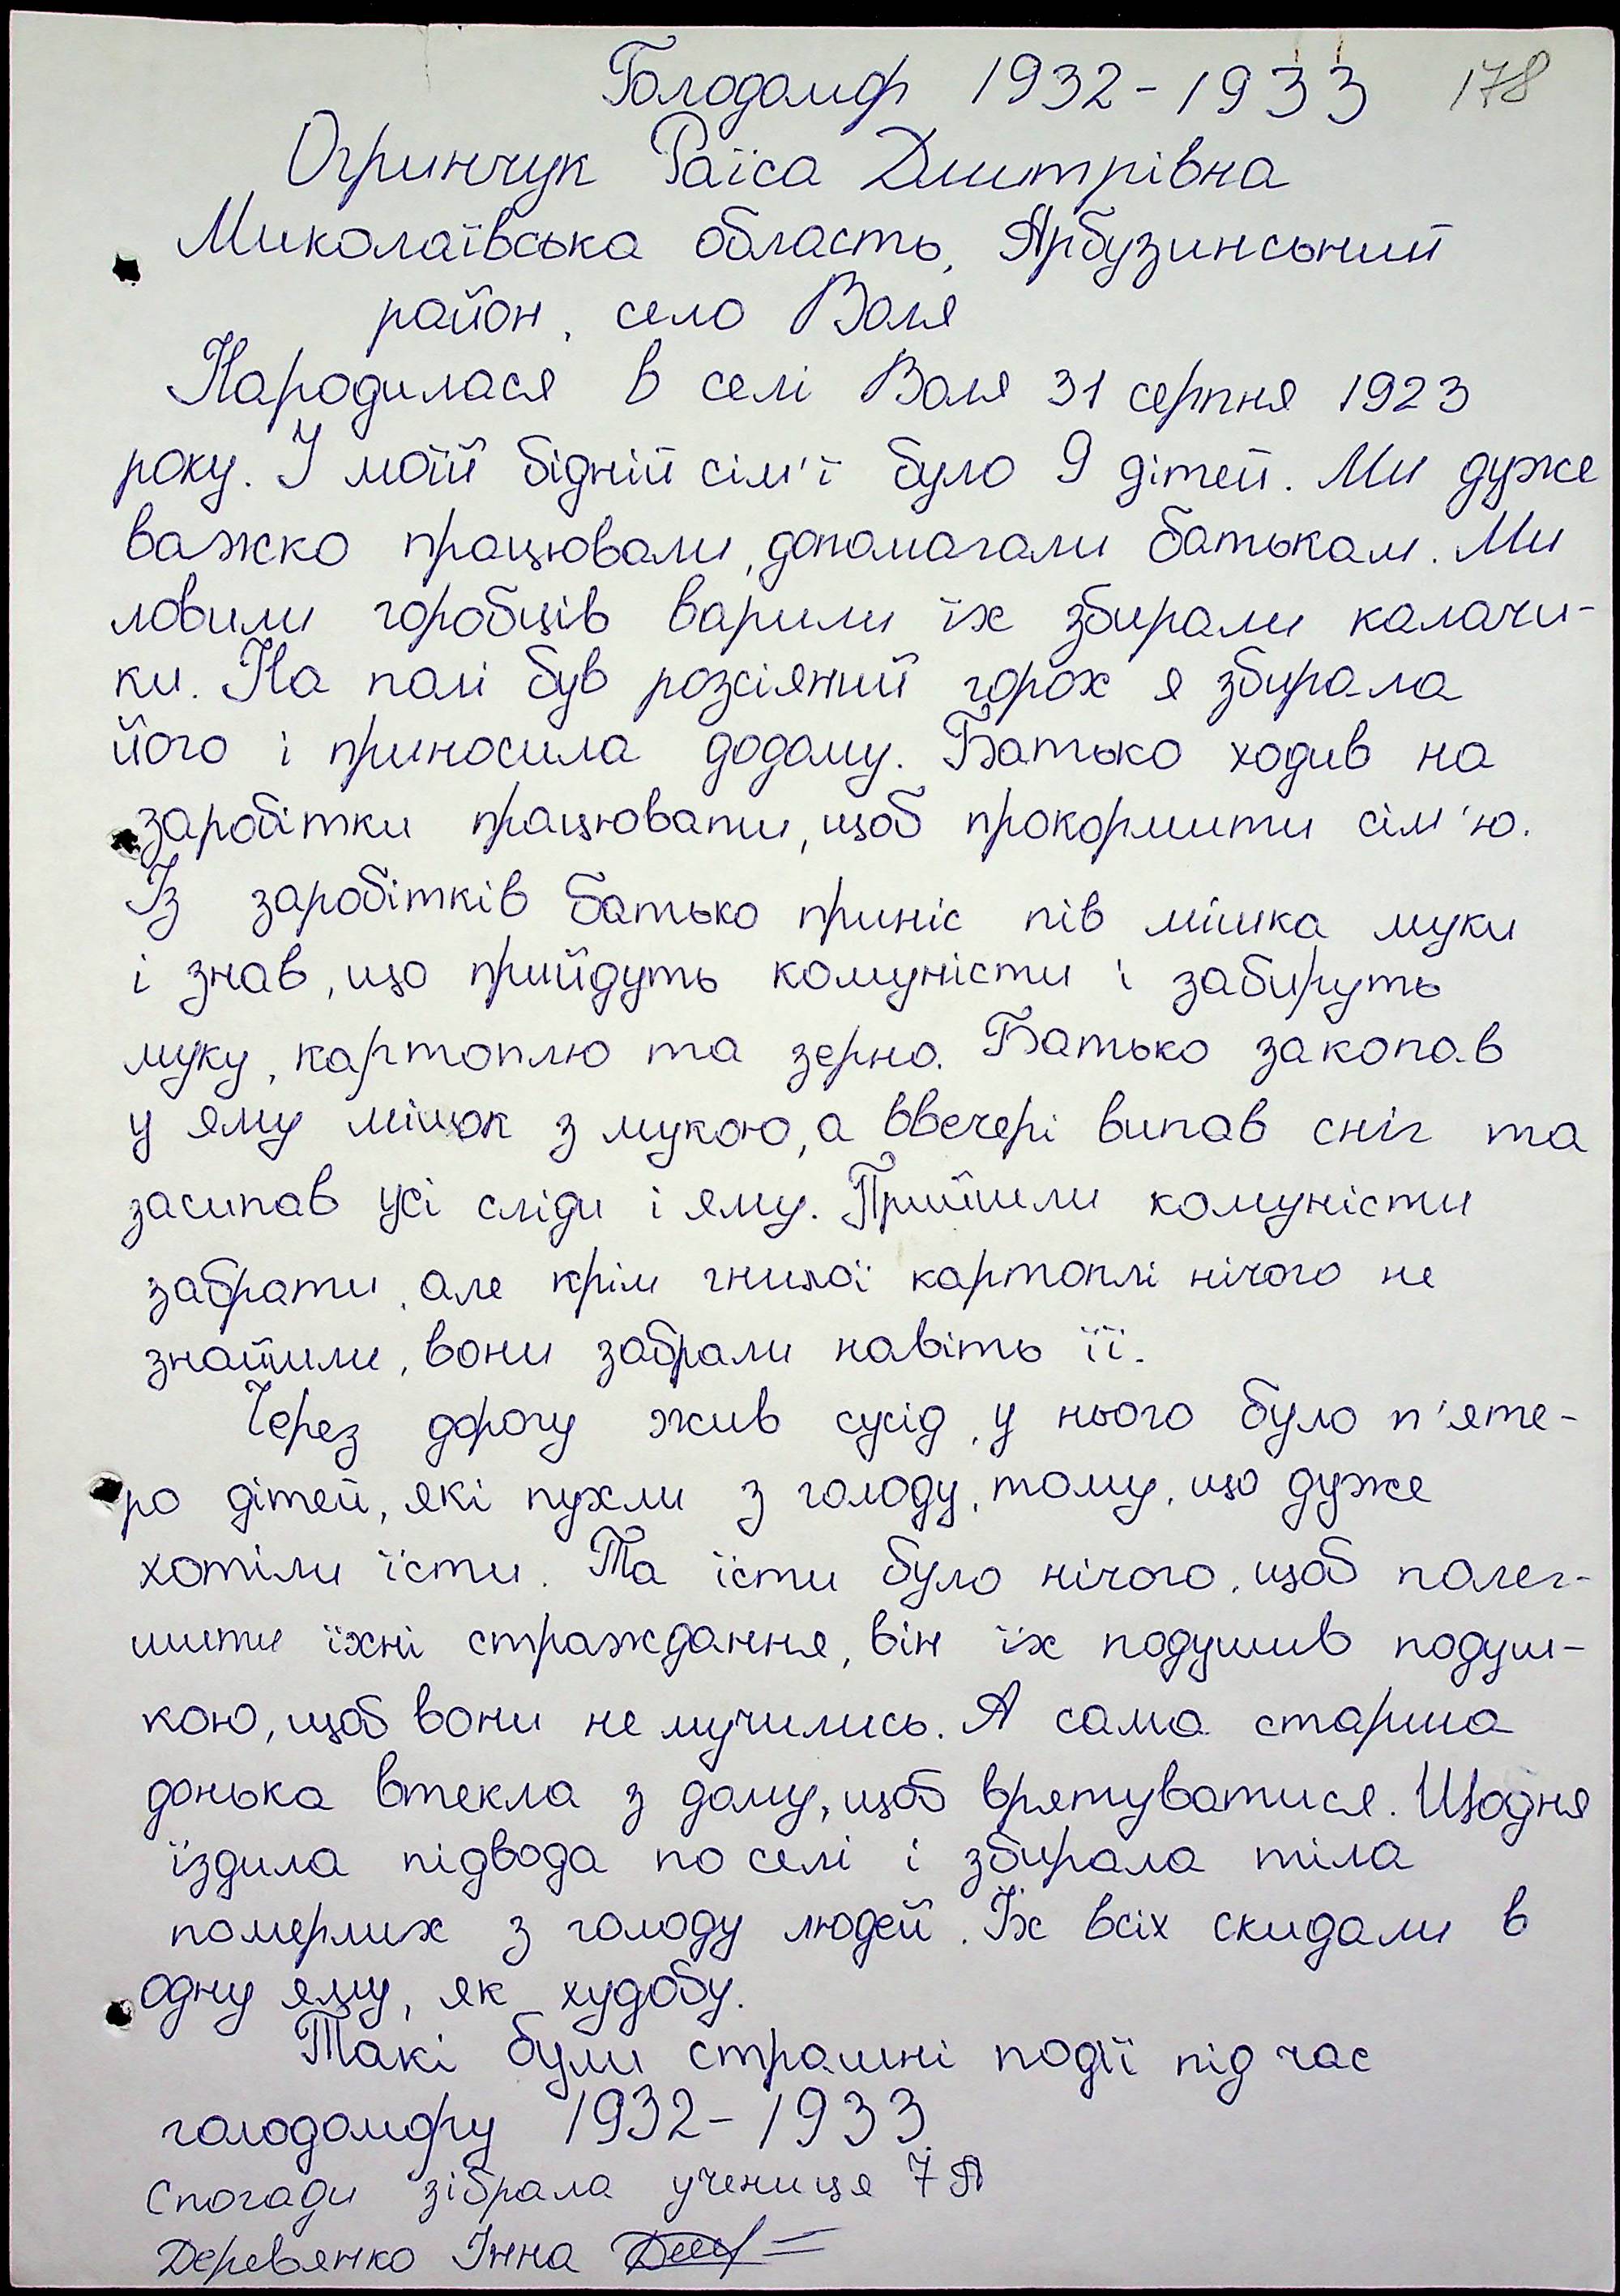 Голодомор 1932-1933 178
Огринчук Раїса Дмитрівна
Миколаївська область, Арбузинський
район, село Воля
Народилася в селі Воля 31 серпня 1923
року. У моїй бідній сім'ї було 9 дітей. Ми дуже
важко працювали, допомагали батькам. Ми
ловили горобців варили їх збирали калачи-
ки. На полі був розсіяний горох я збирала
його і приносила додому. Батько ходив на
заробітки працювати, щоб прокормити сім'ю.
Із заробітків батько приніс пів мішка муки
і знав, що прийдуть комуністи і забируть
муку, картоплю та зерно. Батько закопав
у яму мішок з мукою, а ввечері випав сніг та
засипав усі сліди і яму. Прийшли комуністи
забрати, але крім гнилої картоплі нічого не
знайшли, вони забрали навіть її.
Через дорогу жив сусід, у нього було п'яте-
ро дітей, які пухли з голоду, тому, що дуже
хотіли їсти. Та їсти було нічого, щоб полег-
шити їхні страждання, він їх подушив подуш-
кою, щоб вони не мучились. А сама старша
донька втекла з дому, щоб врятуватися. Щодня
їздила підвода по селі і збирала тіла
померлих з голоду людей. Їх всіх скидали в
одну яму, як худобу.
Такі були страшні події під час
голодомору 1932-1933.
Спогади зібрала учениця 7 А
Деревянко Інна